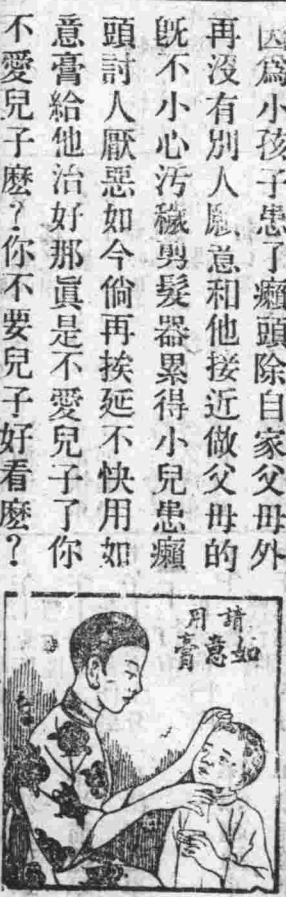 因爲小孩子患了癩頭除自家父母外
再沒有別人願意和他接近做父母的
旣不小心污穢剪髮器累得小兒患癩
頭討人厭惡如今倘再挨延不快用如
意膏給他治好那眞是不愛兒子了你
不愛兒子麽？你不要兒子好看麽？
請用
如意膏